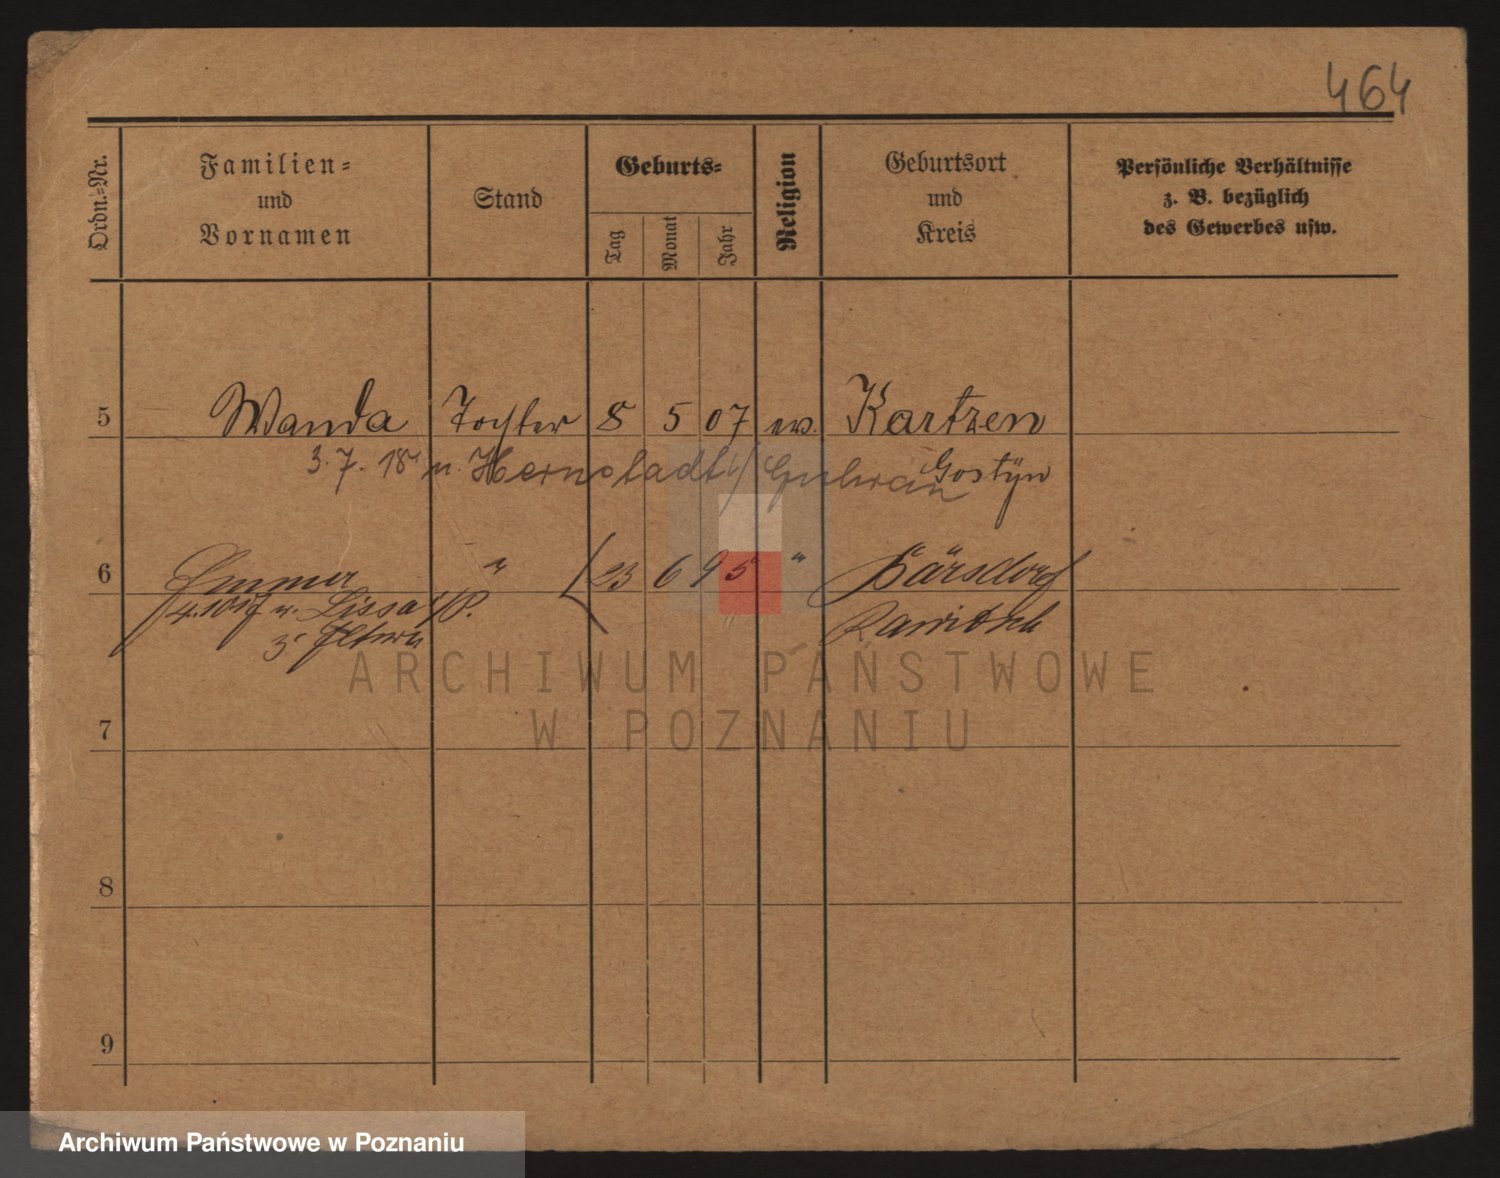 464
Ordn.-Nr.
Familien-
und
Vornamen
Stand
Geburts-
Tag
Monat
Jahr
Religion
Geburtsort
und
Kreis
Persönliche Verhältnisse
z. B. bezüglich
des Gewerbes usw.
5 Wanda Tochter 8 5 07 ev. Kartzen
Gostyn
3. 7. 18 n. Herrnstadt Guhrau
6 " 23 6 95 " Bärsdorf
Rawitsch
n. Lissa i/P.
z. Eltern
7
8
9
ARCHIWUM PAŃSTWOWE
W POZNANIU
Archiwum Państwowe w Poznaniu